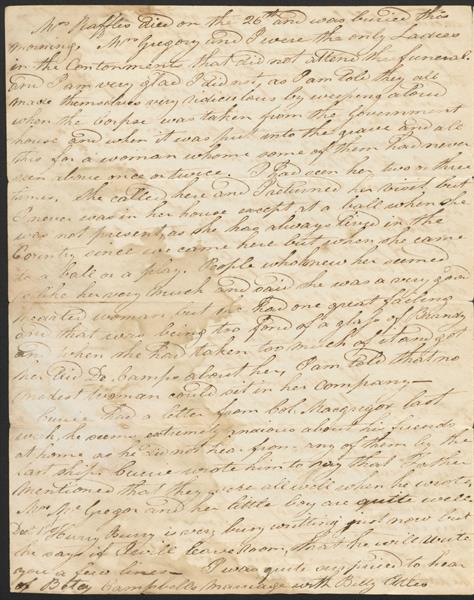 Mrs Raffles died on the 26th and was buried this
morning. Mrs Gregory and I were the only Ladies
in the Cantonment that did not attend the funeral
and I am very glad I did not as I am told they all
made themselves very ridiculous by weeping aloud
when the corpse was taken from the Government
house and when it was put into the grave and all
this for a woman whome some of them had never
seen above once or twice. I had seen her two or three
times. She called here and I returned her visit, but
I never was in her house except at a ball when she
was not present, as she has always lived in the
Country since we came here but when she came
to a ball or a play. People who knew her seemed
to like her very much and said she was a very good
hearted woman but she had one great failing
and that was being too fond of a glass of Brandy
and when she had taken too much of it and got
her Aid De Camps about her, I am told that no
modest woman could sit in her company—
Currie had a letter from Col. Macgregor last
week, he seems extremely anxious about his friends
at home as he did not hear from any of them by the
last ships. Currie wrote him to say that Father
mentioned that they were all well when he wrote.
Mrs Mc Gregor and her little boy are quite well.
Doctr Henry Burry is very busy writting just now but
he says if I will leave room, that he will write
you a few lines— I was quite surprised to hear
of Betsy Campbell's marriage with Billy